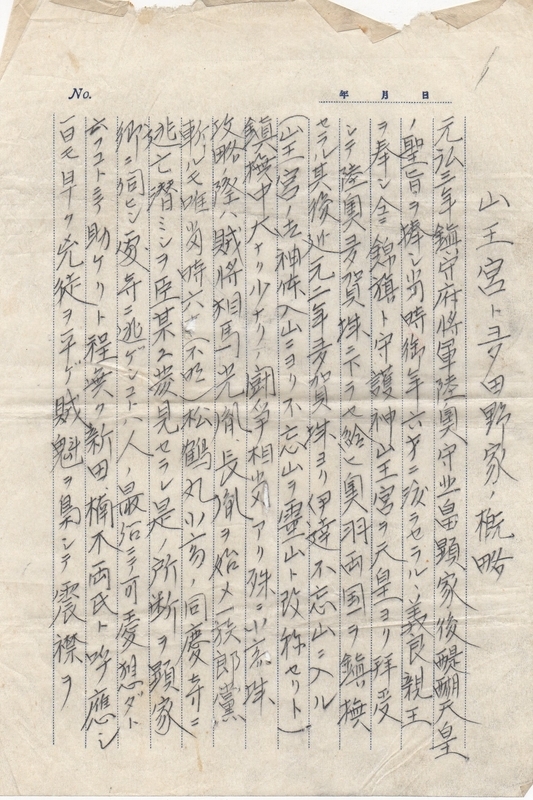 No.
年 月 日
山王宮ト多田野家ノ概略
元弘三年鎮守府将軍陸奥守北畠顕家後醍醐天皇
ノ聖旨ヲ捧シ当時御年六才ニ渡ラセラル、義良親王
ヲ奉ジ 錦旗ト守護神山王宮ヲ天皇ヨリ拝受
シテ陸奥多賀城ニ下ラセ給ヒ奥羽両国ヲ鎮撫
セラル其後延元二年多賀城ヨリ伊達不忘山ニ入ル
(山王宮ノ 神体入山ニヨリ不忘山ヲ霊山ト改称セリト)
鎮撫中大ナリ少ナリノ闘争相当アリ殊ニ小高城
攻略際ハ賊将相馬光胤長胤ヲ始メ一族郎党
斬ルモ唯当時六才 松鶴丸小高ノ同慶寺ニ
逃亡潜ミシヲ臣某ニ発見セラレ是ノ所断ヲ顕家
卿ニ伺ヒシ処寺ニ逃ゲシコト六人ノ最 ニテ可憂想ダト
云フコトニテ助ケリト程無ク新田楠木両氏ト呼応シ
一日モ早ク兇徒ヲ平ゲ賊魁ヲ梟シテ震襟ヲ